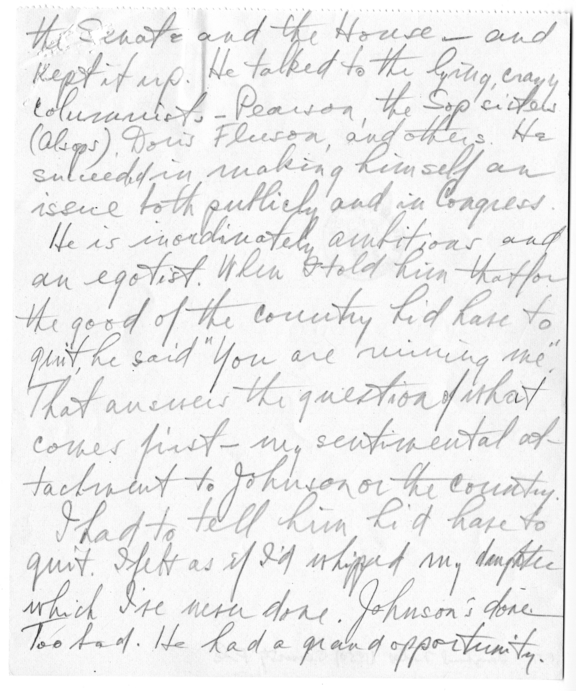 the Senate and the House — and
kept it up. He talked to the lying, crazy
columnists — Pearson, the Sop sisters
(Alsops), Doris Fleeson, and others. He
succeeded in making himself an
issue both publicly and in Congress.
He is inordinately ambitious and
an egotist. When I told him that for
the good of the country he'd have to
quit, he said "You are ruining me".
That answers the question of what
comes first — my sentimental at-
tachment to Johnson or the country.
I had to tell him he'd have to
quit. I felt as if I'd whipped my daughter
which I've never done. Johnson's done
Too bad. He had a grand opportunity.